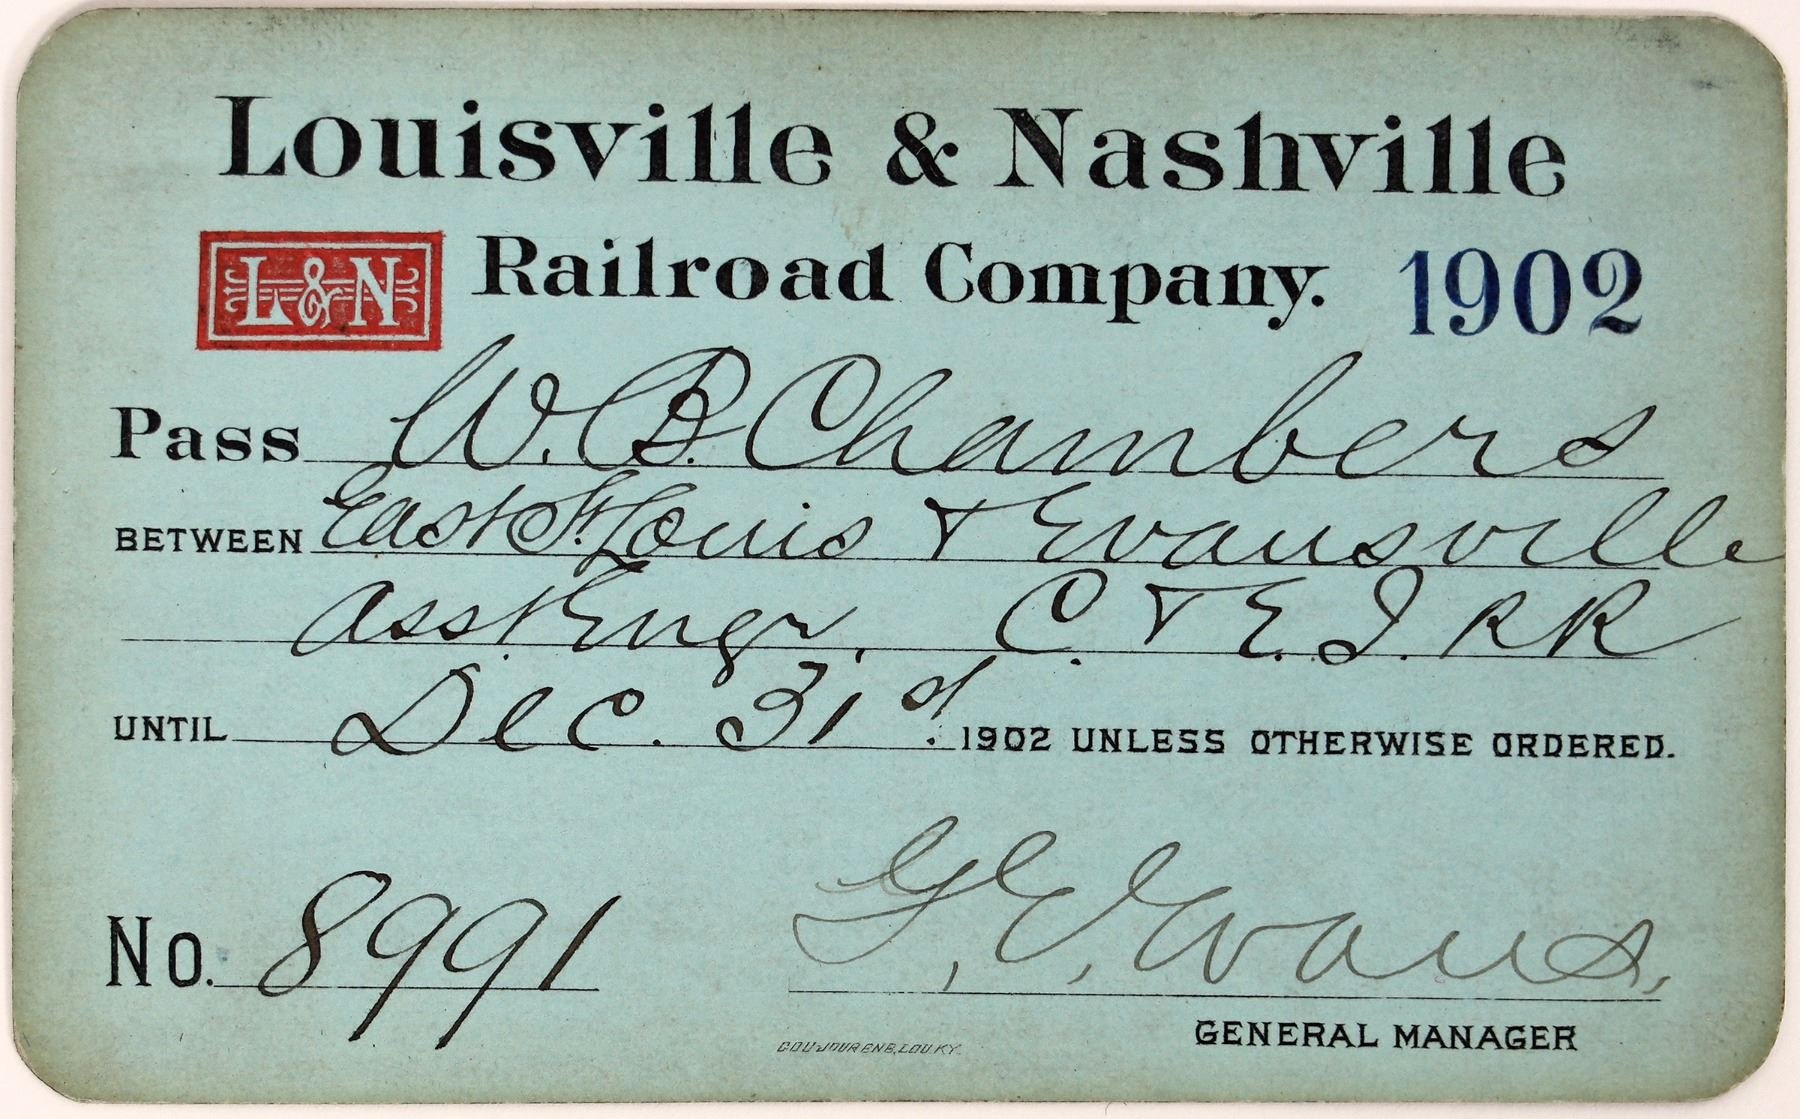 Louisville & Nashville
L&N Railroad Company. 1902
Pass W. B. Chambers
BETWEEN East St. Louis & Evansville
Asst Engr. C. & E. I. RR
UNTIL Dec. 31st 1902 UNLESS OTHERWISE ORDERED.
No. 8991 G. E. Evans.
GENERAL MANAGER
COU JOUR ENG, LOU KY.